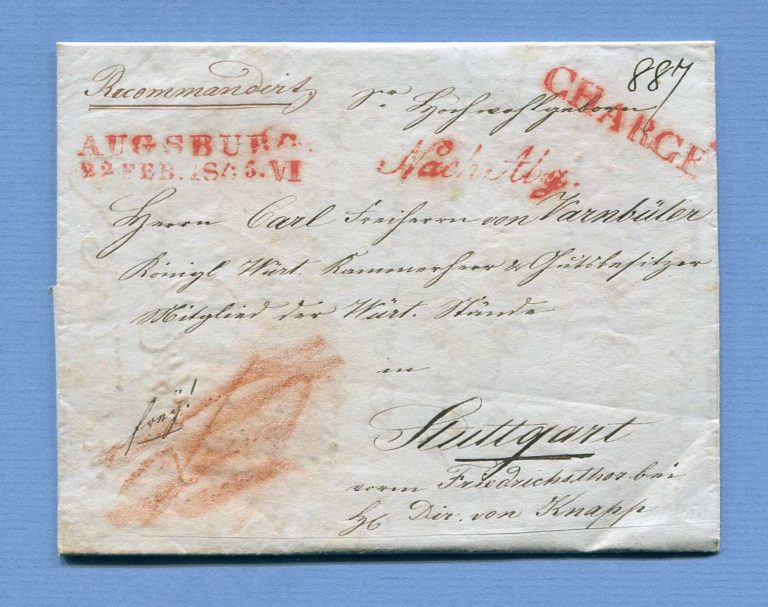 887
Recommandirt,
Sr Hochwohlgeborn
CHARGÉ
AUGSBURG.
22 FEB. 1845. VI
Nach Abg.
Herrn Carl Freiherrn von Varnbüler
Königl Würt. Kammerherr & Gutsbesitzer
Mitglied der Würt. Stände
in
freÿ!
Stuttgart
vorm Friedrichsthor bei
H. Dir. von Knapp